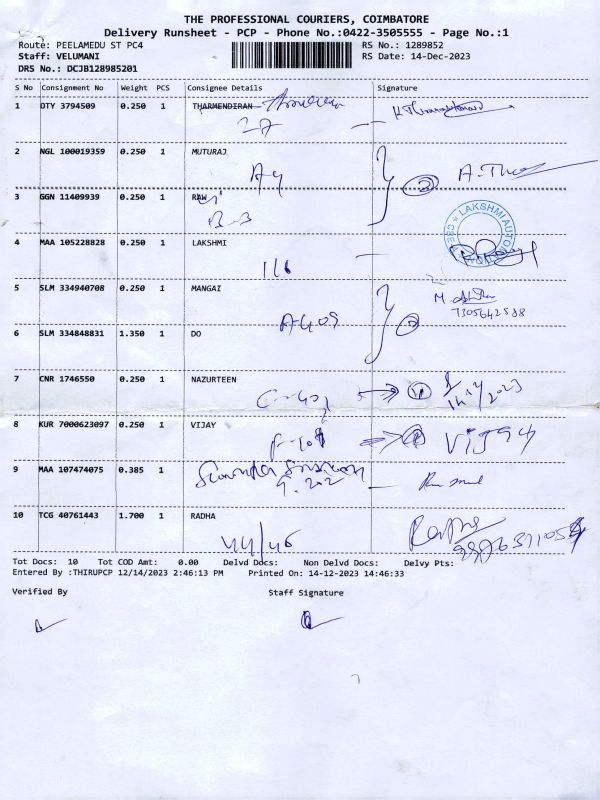 THE PROFESSIONAL COURIERS, COIMBATORE
Delivery Runsheet - PCP - Phone No.:0422-3505555 - Page No.:1
Route: PEELAMEDU ST PC4 RS No.: 1289852
Staff: VELUMANI RS Date: 14-Dec-2023
DRS No.: DCJB128985201
S No Consignment No Weight PCS Consignee Details Signature
1 DTY 3794509 0.250 1 THARMENDIRAN
27
2 NGL 100019359 0.250 1 MUTURAJ
A4 2
3 GGN 11409939 0.250 1 RAW
B-3
4 MAA 105228828 0.250 1 LAKSHMI
LAKSHMI AUTO
116
5 SLM 334940708 0.250 1 MANGAI
7305642588
A409
6 SLM 334848831 1.350 1 DO
7 CNR 1746550 0.250 1 NAZURTEEN
14/12/2023
8 KUR 7000623097 0.250 1 VIJAY
VIJAY
9 MAA 107474075 0.385 1
10 TCG 40761443 1.700 1 RADHA
Radha
44/46
Tot Docs: 10 Tot COD Amt: 0.00 Delvd Docs: Non Delvd Docs: Delvy Pts:
Entered By :THIRUPCP 12/14/2023 2:46:13 PM Printed On: 14-12-2023 14:46:33
Verified By Staff Signature